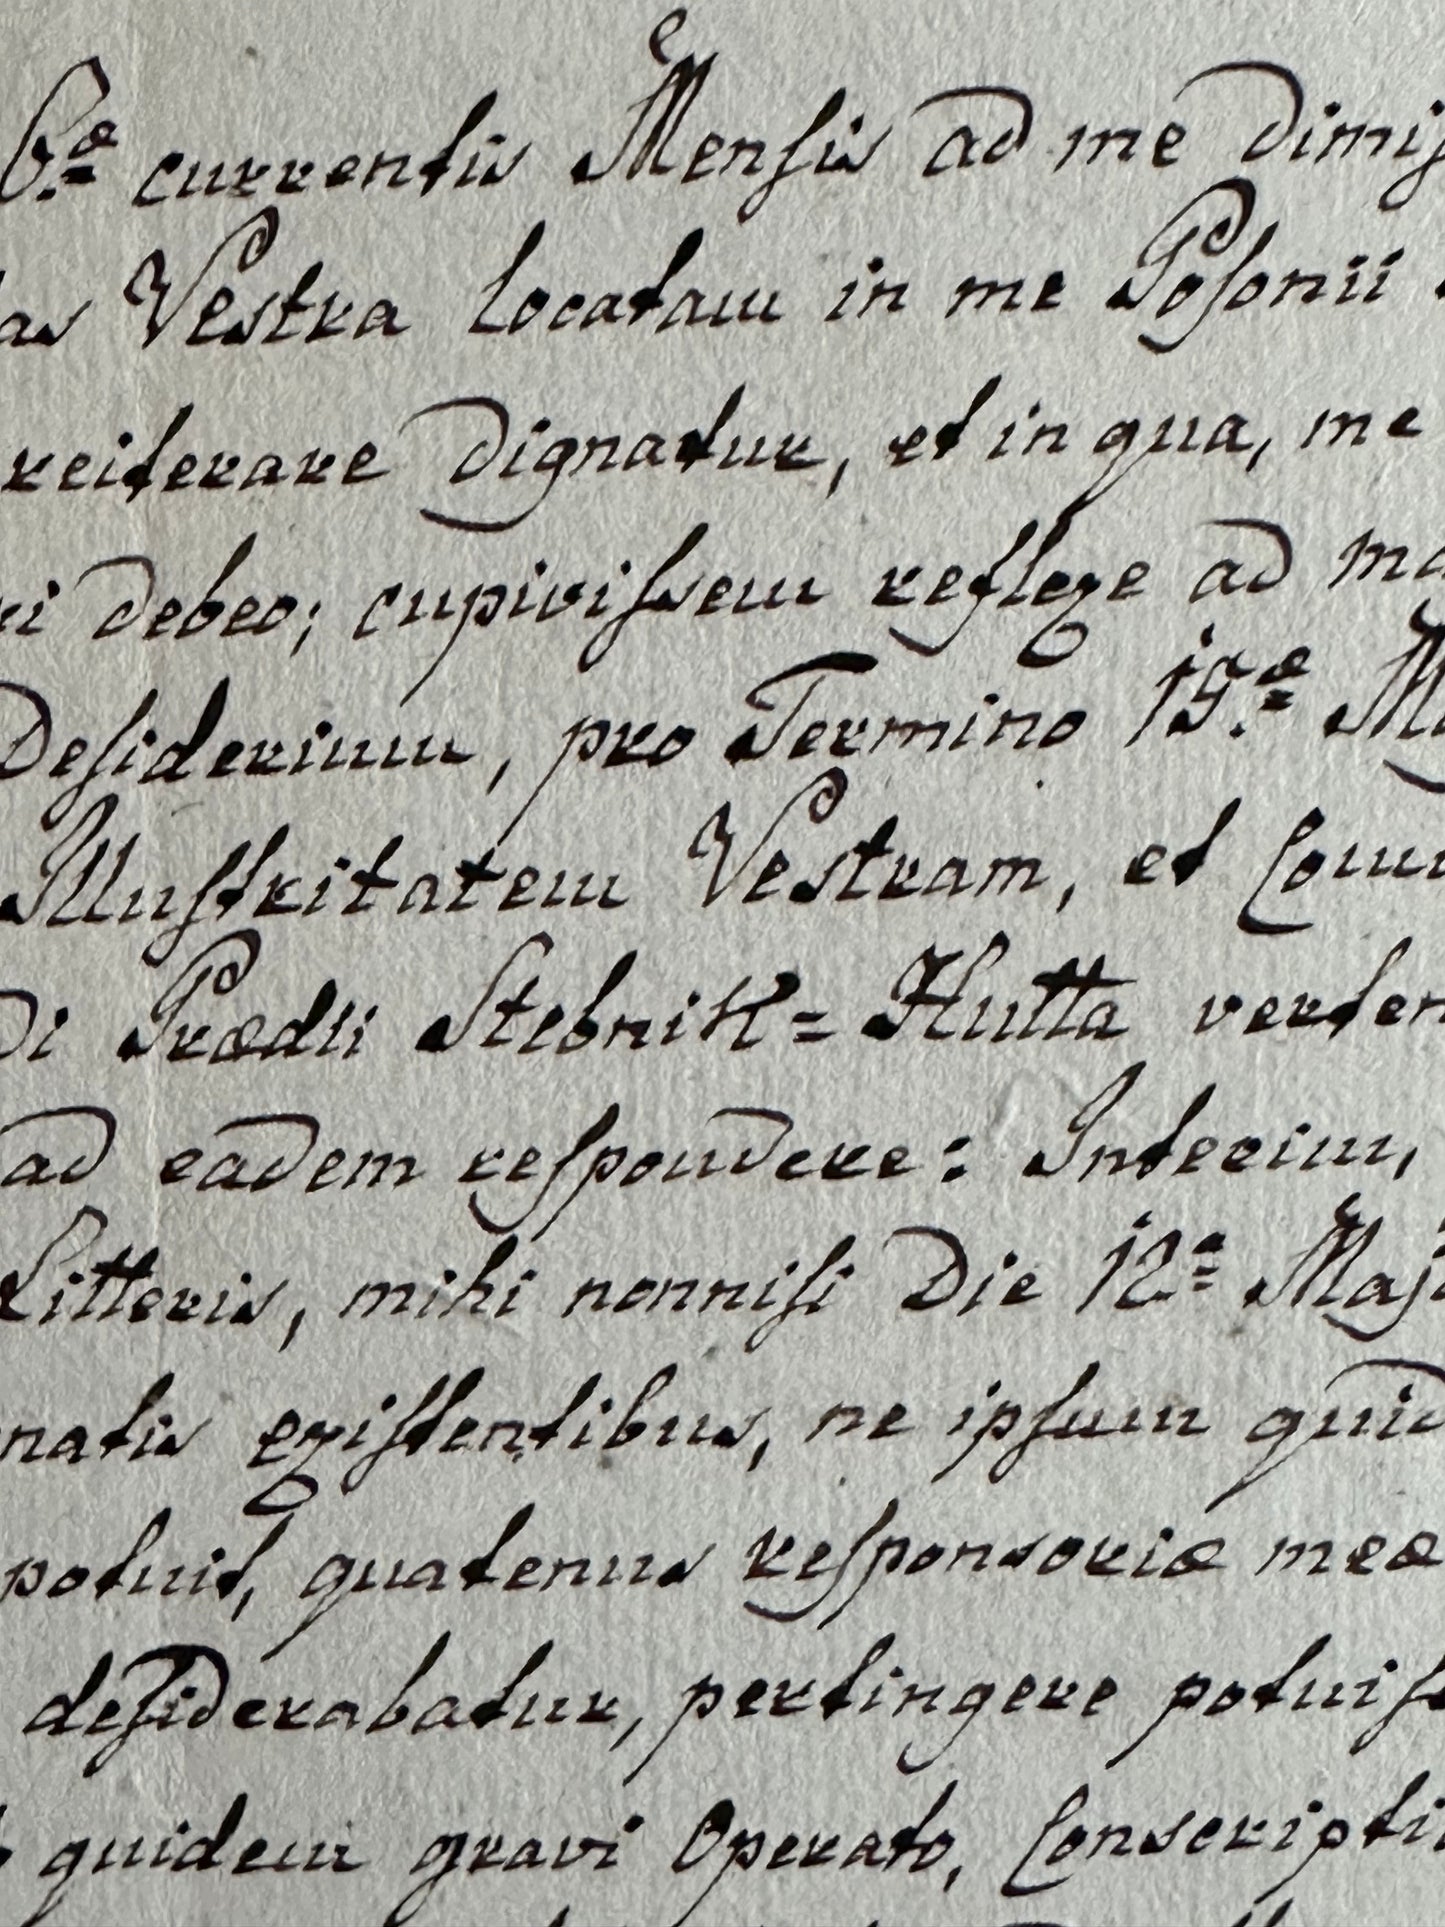 6.a currentis Mensis ad me dimis
as Vestra locatam in me Posonii
reiterare dignatur, et in qua, me
ri debeo; cupivissem reflexe ad ma
Desiderium, pro Termino 15.a M
Illustritatem Vestram, et Com
di Prædii Stebnik=Hutta verten
ad eadem respondere: Interim,
Litteris, mihi nonnisi Die 12a Maji
natis existentibus, ne ipsum quid
potuit, quatenus responsoriæ meæ
desiderabatur, pertingere potuiss
quidem gravi Operato, Conscripti